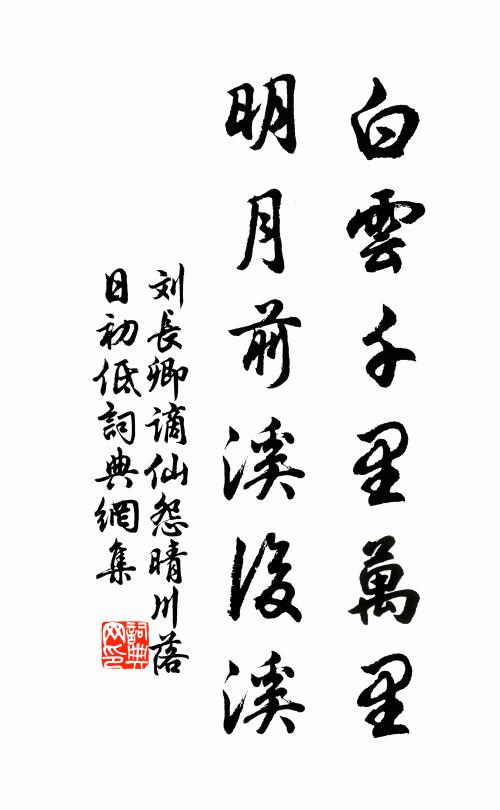 白雲千里萬里
明月前溪後溪
刘長卿謫仙怨晴川落
日初低詞典網集
詞典
网印